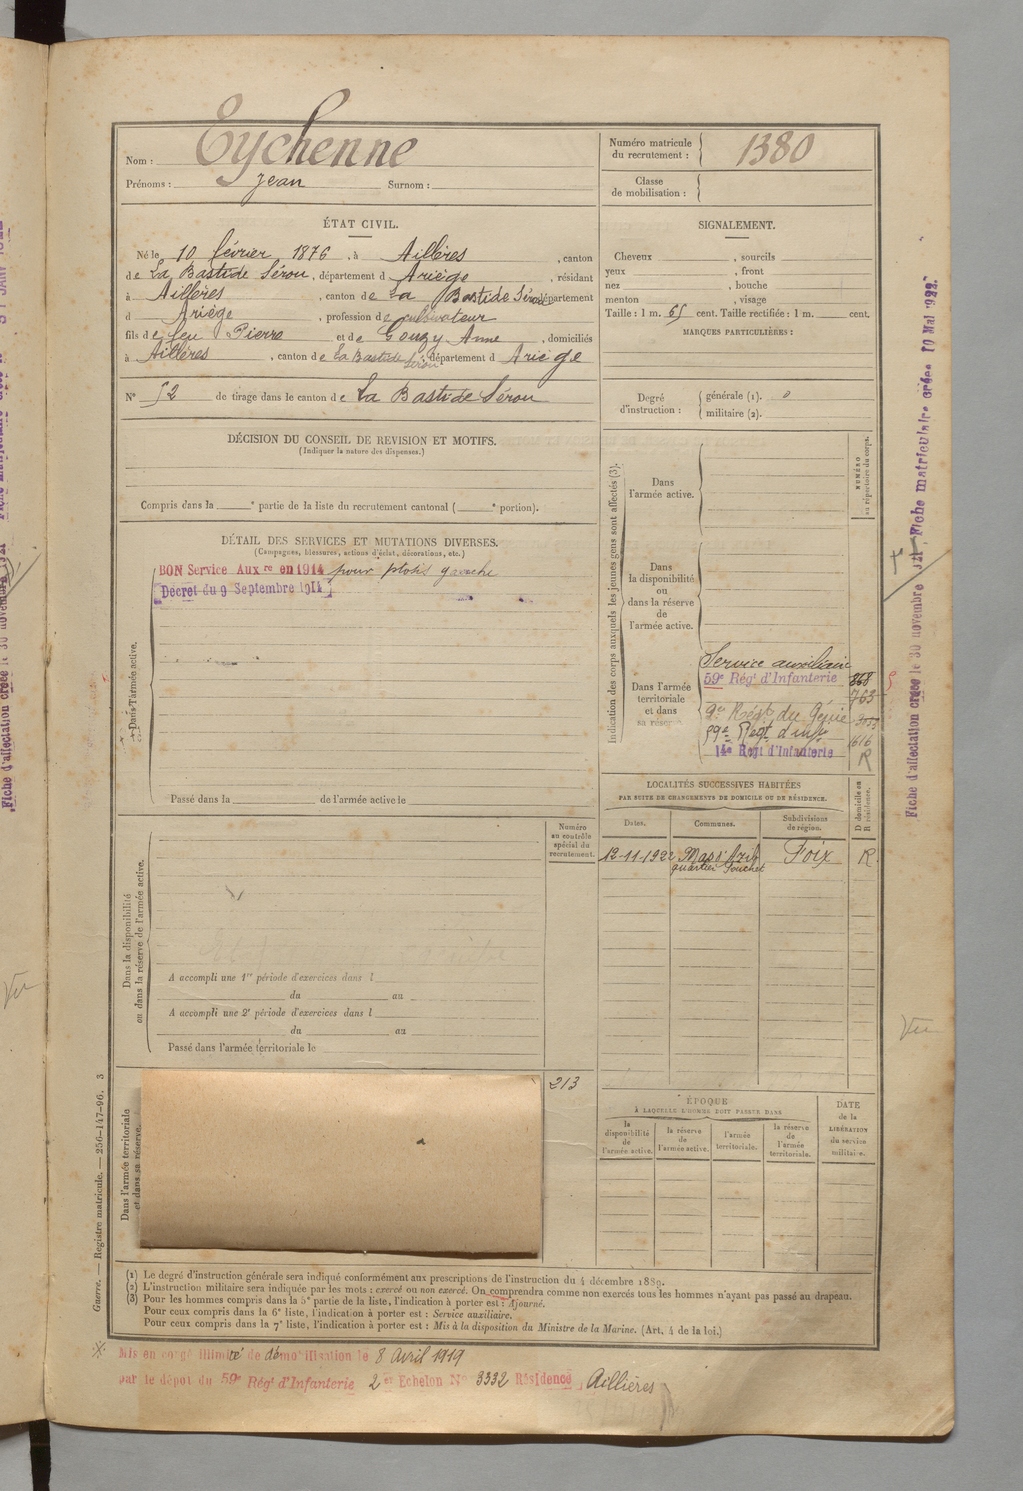 Nom : Eychenne
Prénoms : Jean Surnom :
Numéro matricule du recrutement : 1380
Classe de mobilisation :
ÉTAT CIVIL.
Né le 10 février 1876, à Aillères, canton
de La Bastide Sérou, département d Ariège, résidant
à Aillères, canton de La Bastide Sérou département
d Ariège, profession de cultivateur
fils de feu Pierre et de Gouzy Anne, domiciliés
à Aillères, canton de La Bastide Sérou, département d Ariège
N° 52 de tirage dans le canton de La Bastide Sérou
SIGNALEMENT.
Cheveux , sourcils
yeux , front
nez , bouche
menton , visage
Taille : 1 m. 65 cent. Taille rectifiée : 1 m. cent.
MARQUES PARTICULIÈRES :
Degré d'instruction : générale (1). 0
militaire (2).
DÉCISION DU CONSEIL DE REVISION ET MOTIFS.
(Indiquer la nature des dispenses.)
Compris dans la e partie de la liste du recrutement cantonal ( e portion).
DÉTAIL DES SERVICES ET MUTATIONS DIVERSES.
(Campagnes, blessures, actions d'éclat, décorations, etc.)
BON Service Aux re en 1914 pour ptosis gauche
Décret du 9 Septembre 1914
Dans l'armée active.
Passé dans la de l'armée active le
Indication des corps auxquels les jeunes gens sont affectés (3).
NUMÉRO au répertoire du corps.
Dans l'armée active.
Dans la disponibilité ou dans la réserve de l'armée active.
Dans l'armée territoriale et dans sa réserve
Service auxiliaire
59e Rég t d'Infanterie 868
763
2e Régt du Génie 3055
99e Regt d'inf 1616
14e Regt d'Infanterie R
LOCALITÉS SUCCESSIVES HABITÉES
PAR SUITE DE CHANGEMENTS DE DOMICILE OU DE RÉSIDENCE.
Dates. Communes. Subdivisions de région. D domicile ou R résidence.
12-11-1922 Mas d'Azil Foix R
quartier Pouchet
Numéro au contrôle spécial du recrutement.
Dans la disponibilité ou dans la réserve de l'armée active.
A accompli une 1re période d'exercices dans l
du au
A accompli une 2e période d'exercices dans l
du au
Passé dans l'armée territoriale le
Dans l'armée territoriale et dans sa réserve.
213
ÉPOQUE
À LAQUELLE L'HOMME DOIT PASSER DANS
la disponibilité de l'armée active.
la réserve de l'armée active.
l'armée territoriale.
la réserve de l'armée territoriale.
DATE de la LIBÉRATION du service militaire.
(1) Le degré d'instruction générale sera indiqué conformément aux prescriptions de l'instruction du 4 décembre 1889.
(2) L'instruction militaire sera indiquée par les mots : exercé ou non exercé. On comprendra comme non exercés tous les hommes n'ayant pas passé au drapeau.
(3) Pour les hommes compris dans la 5e partie de la liste, l'indication à porter est : Ajourné.
Pour ceux compris dans la 6e liste, l'indication à porter est : Service auxiliaire.
Pour ceux compris dans la 7e liste, l'indication à porter est : Mis à la disposition du Ministre de la Marine. (Art. 4 de la loi.)
Mis en congé illimité de démobilisation le 8 Avril 1919
par le dépôt du 59e Rég t d'Infanterie 2e Echelon N° 3332 Résidence Aillières
Guerre. — Registre matricule. — 256-147-96. 3
Fiche d'affectation créée le 30 novembre 1921, Fiche matriculaire créée 10 Mai 1922.
Vu
Vu